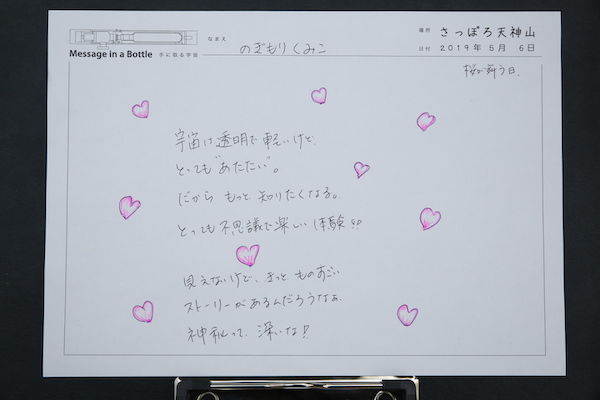 Message in a Bottle 手に取る宇宙
なまえ
のぎもりくみこ
場所 さっぽろ天神山
日付 2019年5月6日
桜が舞う日。
宇宙は透明で軽いけど、
とっても"あたたい"。
だから もっと 知りたくなる。
とっても不思議で楽しい体験!!
見えないけど、きっと ものすごい
ストーリーがあるんだろうなぁ。
神秘って、深いな!